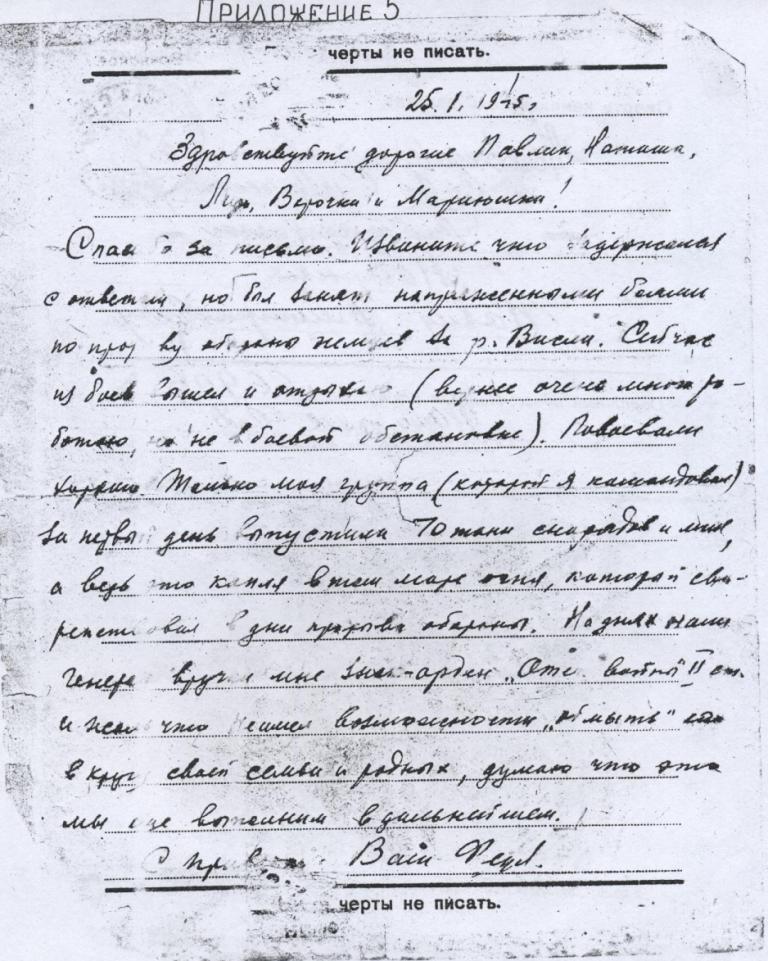 ПРИЛОЖЕНИЕ 5
черты не писать.
25. 1. 1945.
Здравствуйте дорогие Павлик, Наташа,
Верочка и Мариюшка!
Спасибо за письмо. Извините что задержался
с ответом, но был занят напряженными боями
по прорыву обороны немцев за р. Висла. Сейчас
из боев вышел и отдыхаю (вернее очень много ра-
ботаю, но не в боевой обстановке). Повоевали
хорошо. Только моя группа (которой я командовал)
за первый день выпустила 70 тонн снарядов и мин,
а ведь это капля в том море огня, который сви-
репствовал в дни прорыва обороны. На днях наш
генерал вручил мне знак-орден „Оте. войны" II ст.
и жаль что не имел возможности „обмыть" его
в кругу своей семьи и родных, думаю что это
мы еще выполним в дальнейшем.
С приветом Ваш
черты не писать.